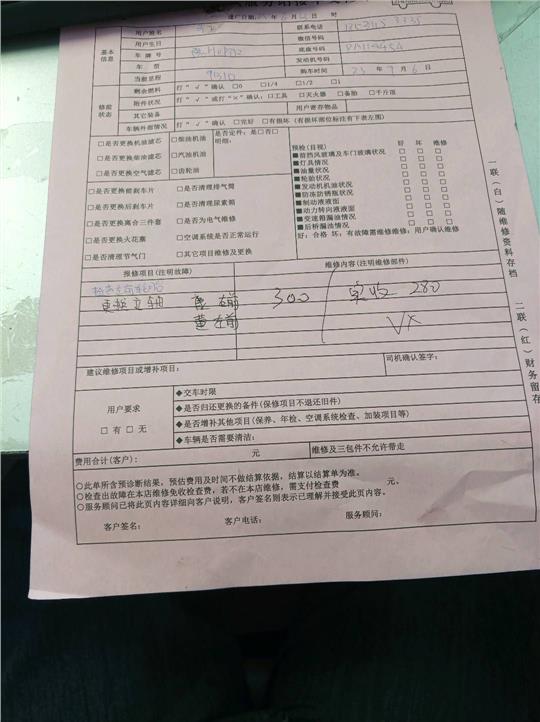 基本信息
用户姓名
联系电话
用户生日
微信号码
车 牌 号
底盘号码
车 型
发动机号码
当前里程
购车时间 23 年 9 月 6 日
修前状态
剩余燃料 打“√”确认 □0 □1/4 □1/2 □1
附件状况 打“√”或打“×”确认：□工具 □灭火器 □备胎 □千斤顶
其它装备
用户寄存物品
车辆外部情况 打“√”确认 □完好 □有损坏（有损坏部位标注有下表左图）
□是否更换机油滤芯 □柴油机油 是否定件：是□否□
明细：
□是否更换柴油滤芯 □汽油机油
□是否更换空气滤芯 □齿轮油
□是否更换前刹车片 □是否清理排气筒
□是否更换后刹车片 □是否清理尿素箱
□是否更换离合三件套 □是否为电气维修
□是否更换火花塞 □空调系统是否正常运行
□是否清理节气门 □其它项目维修及更换
预检(目视) 好 坏 维修
■前挡风玻璃及车门玻璃状况 □ □ □
■灯具情况 □ □ □
■油量状况 □ □ □
■轮胎状况 □ □ □
■发动机机油状况 □ □ □
■防冻防锈瓶状况 □ □ □
■制动液液面 □ □ □
■动力转向液液面 □ □ □
■变速箱漏油情况 □ □ □
■后桥漏油情况 □ □ □
好：合格 坏：有故障需维修维修：用户确认维修
报修项目(注明故障)
维修内容(注明维修部件)
更换立轴 右前 300 实收 280
左前 VX
建议维修项目或增补项目：
司机确认签字：
用户要求
□ 有 □ 无
◆交车时限
◆是否归还更换的备件(保修项目不退还旧件)
◆是否增补其他项目(保养、年检、空调系统检查、加装项目等)
◆车辆是否需要清洁：
费用合计(客户)： 元 维修及三包件不允许带走
○此单所含预诊断结果，预估费用及时间不做结算依据，结算以结算单为准。
○检查出故障在本店维修免收检查费，若不在本店维修，需支付检查费 元。
○服务顾问已将此页内容详细向客户说明，客户签名则表示已理解并接受此页内容。
客户签名： 客户电话： 服务顾问：
一联（白）随维修资料存档 二联（红）财务留存